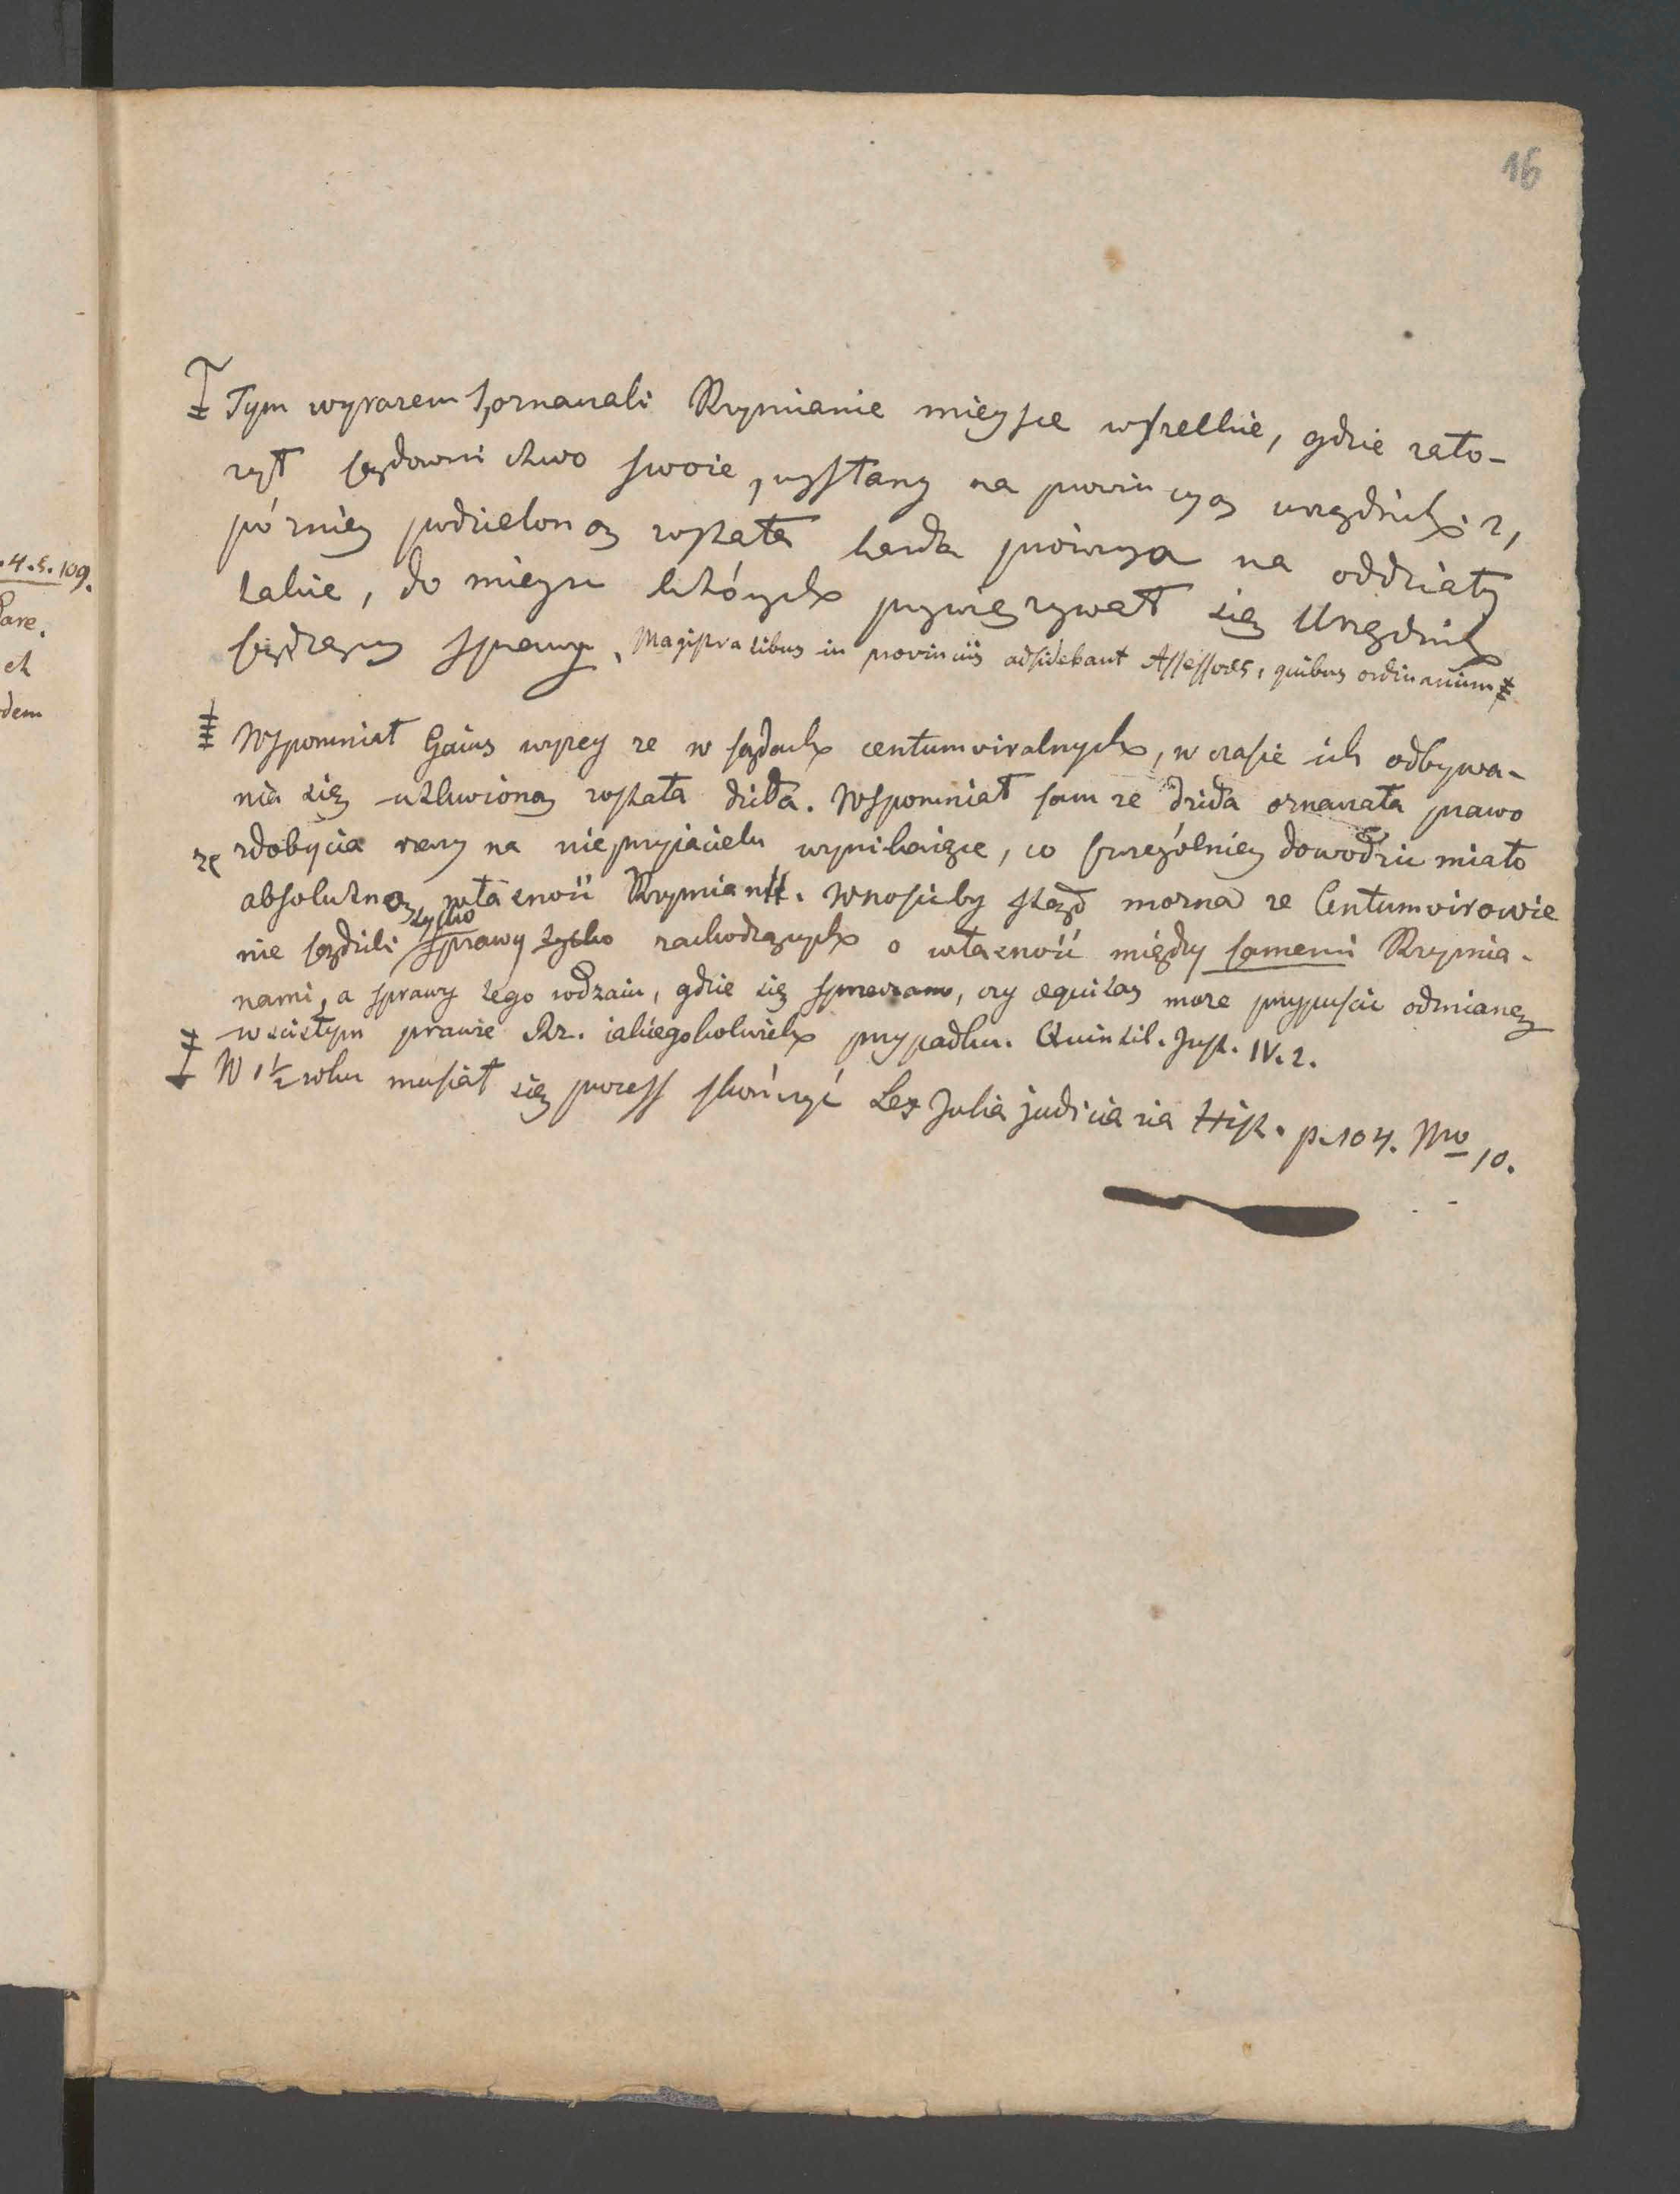 16
Tym wyrazem oznaczali Rzymianie mieysce wszelkie, gdzie zało-
żył sądownictwo swoie, wysłany na prowincyą urzędnik. 2,
pózniey podzieloną została każda prowincya na oddziały
takie, do mieysc których przywięzywał się Urzędnik
sądzący sprawy. Magistratibus in provinciis adsidebant Assessores, quibus ordinarium
Wspomniał Gaius wyżey że w sądach centumviralnych, w czasie ich odbywa-
nia się utkwioną została dzida. Wspomniał sam że dzida oznaczała prawo
zdobycia rzeczy na nieprzyjacielu wynikaiące, co szczególniey dowodzić miało
że absolutną własność Rzymian. Wnosićby ztąd można że Centumvirowie
nie sądzili tylko sprawy tylko zachodzących o własność między samemi Rzymia-
nami, a sprawy tego rodzaiu, gdzie się sprzeczano, czy æquitas może przypuścić odmianę
w scisłym prawie Rz. iakiegokolwiek przypadku. Quinctil. Inst. IV. 2.
W 1½ roku musiał się process skończyć Lex Julia judiciaria Hist. p. 104. Nro 10.
.4.5.109.
Pare.
ch
dem